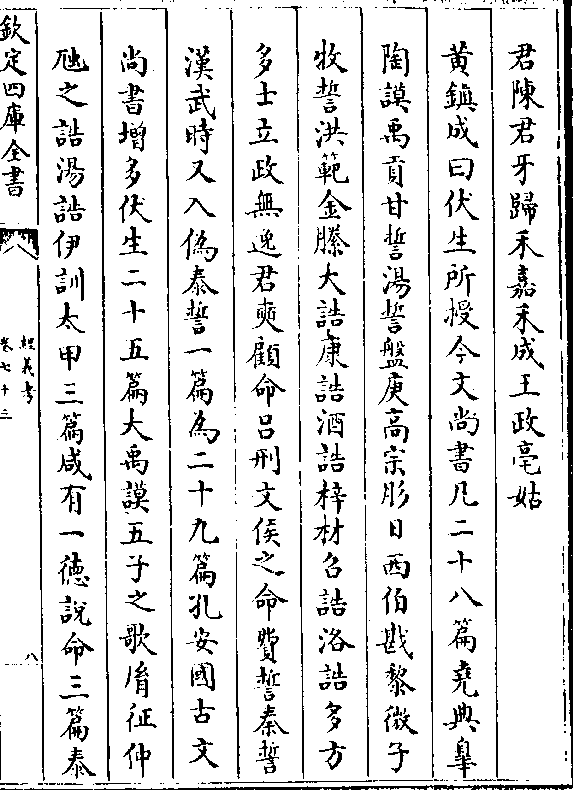 君陳君牙歸禾嘉禾成王政亳姑
黄鎮成曰伏生所授今文尚書凡二十八篇堯典臯
陶謨禹貢甘誓湯誓盤庚高宗肜日西伯戡黎微子
牧誓洪範金縢大誥康誥酒誥梓材召誥洛誥多方
多士立政無逸君奭顧命吕刑文侯之命費誓秦誓
漢武時又入偽泰誓一篇為二十九篇孔安國古文
尚書增多伏生二十五篇大禹謨五子之歌胤征仲
虺之誥湯誥伊訓太甲三篇咸有一德說命三篇泰
欽定四庫全書
經義考
卷七十三
八